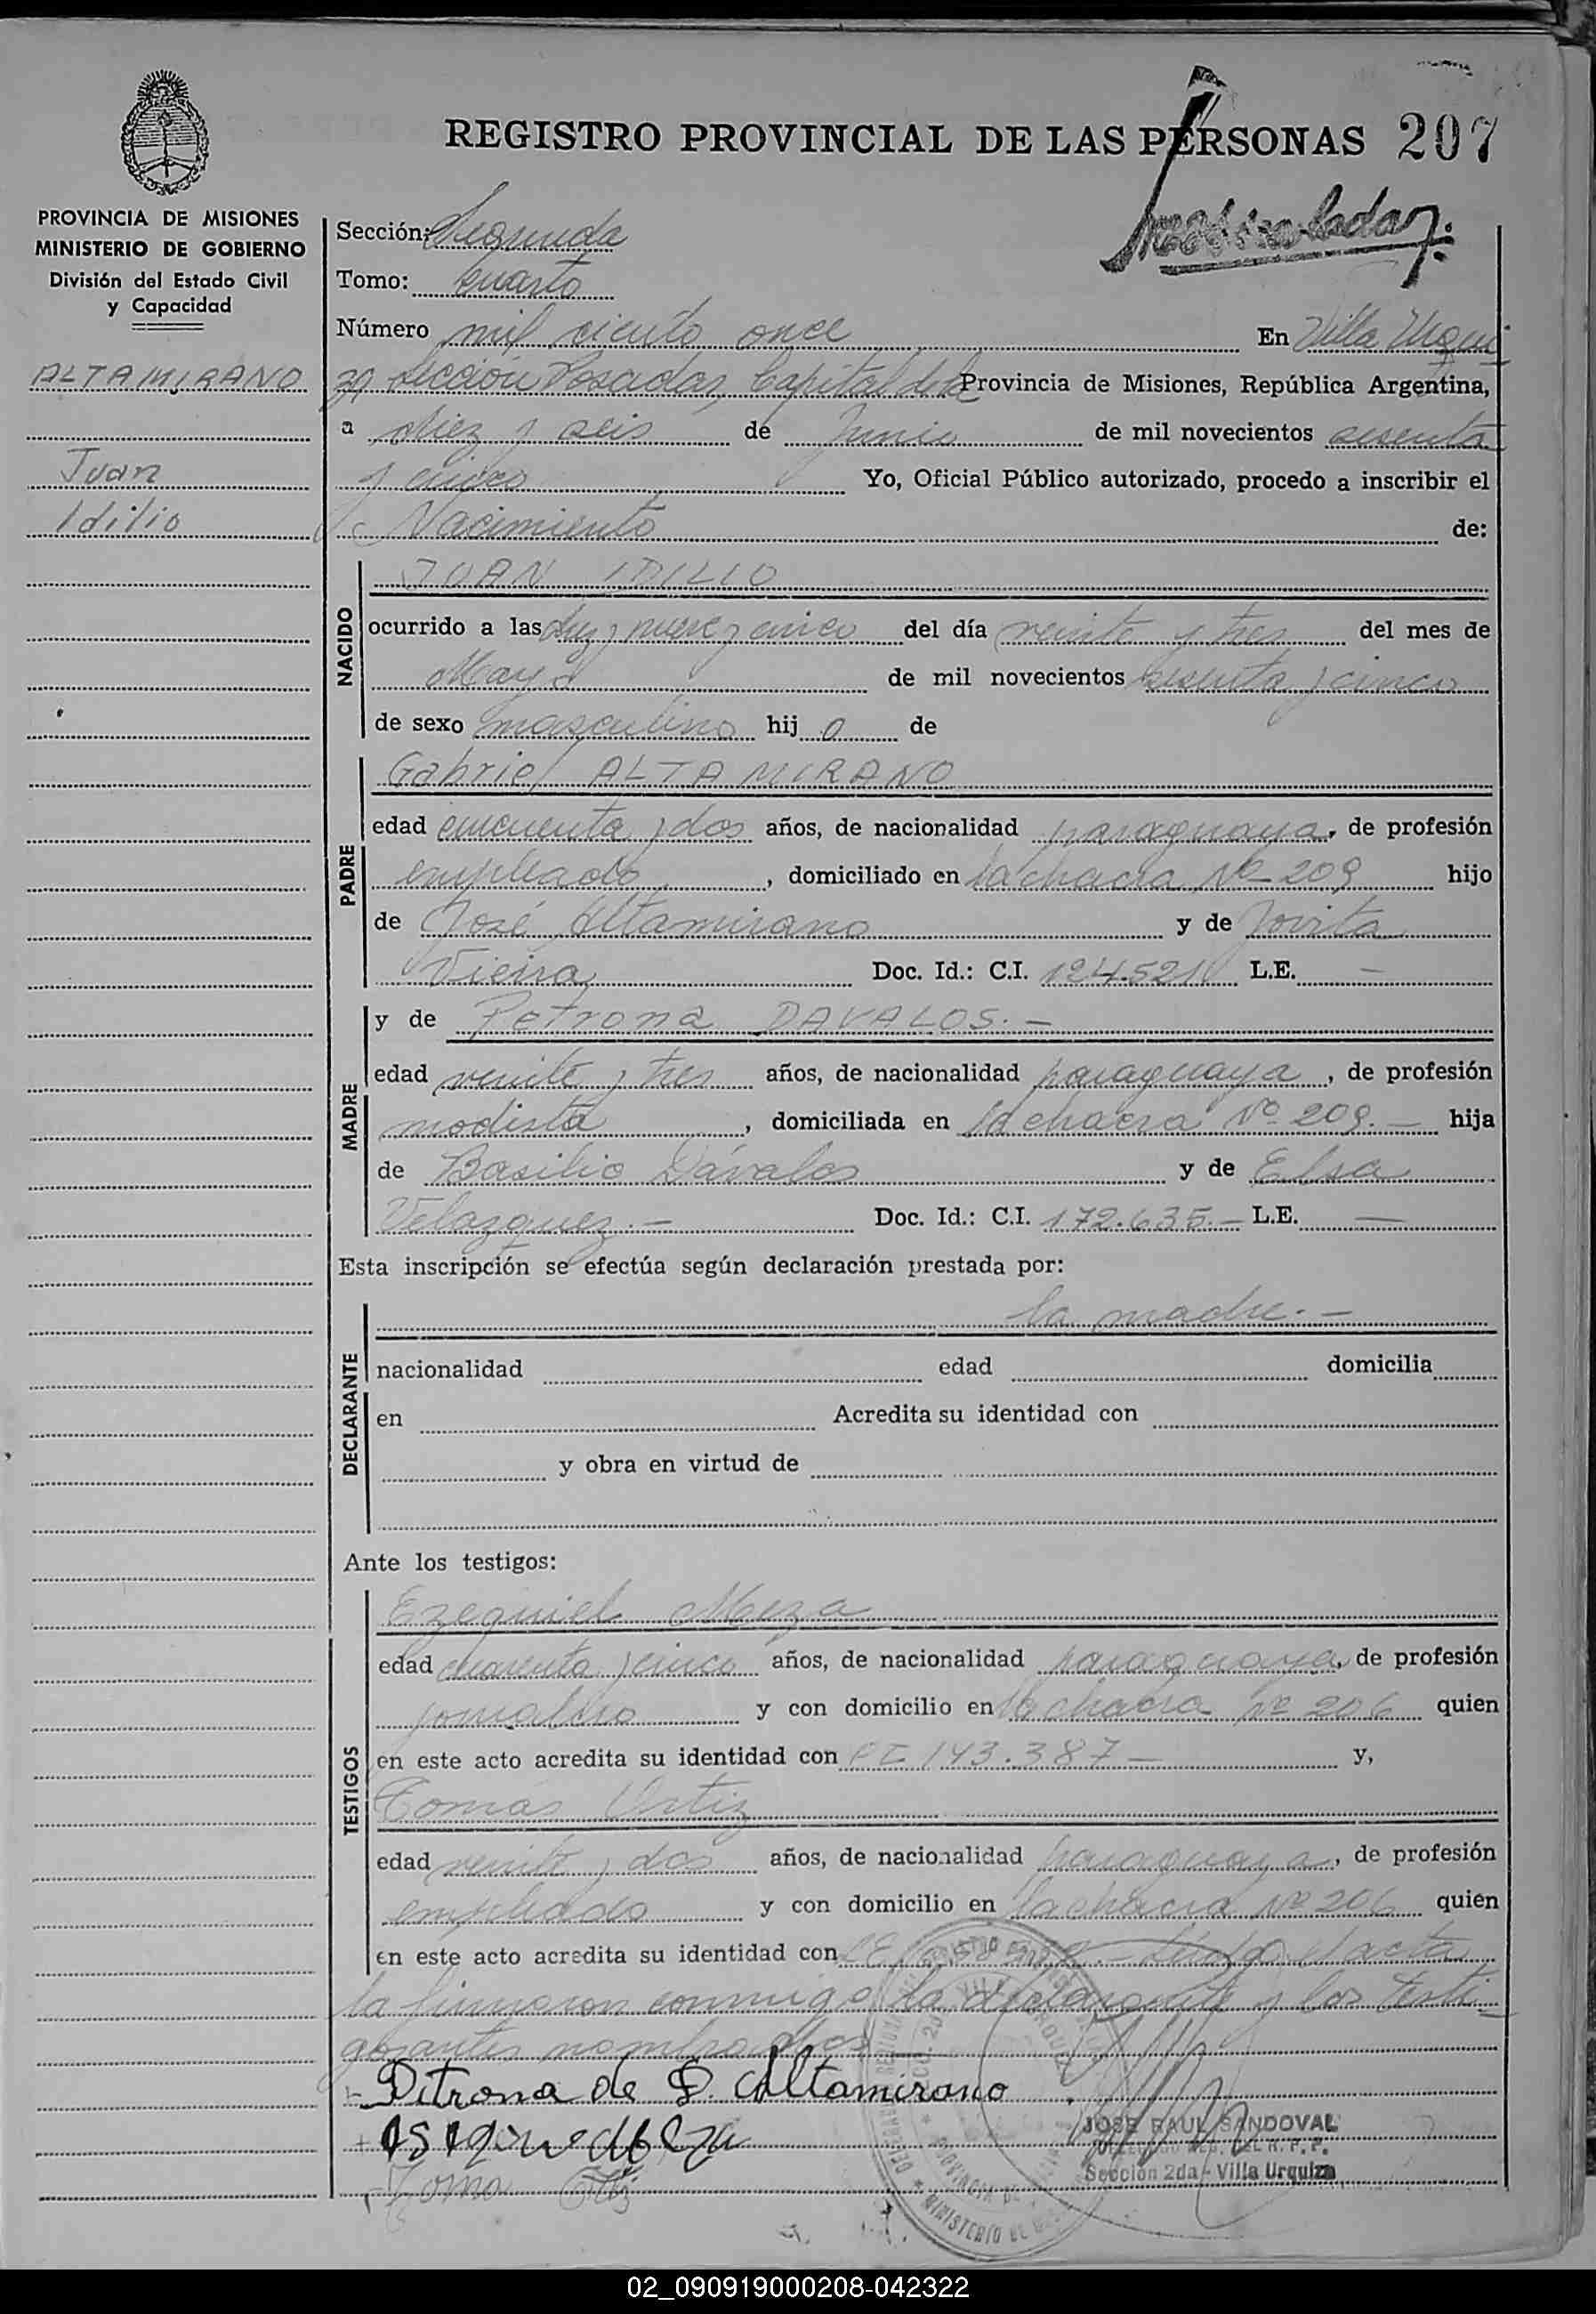 REGISTRO PROVINCIAL DE LAS PERSONAS 207
PROVINCIA DE MISIONES
MINISTERIO DE GOBIERNO
División del Estado Civil
y Capacidad
ALTAMIRANO
Juan
Idilio
Sección: Segunda
Tomo: Cuarto
Número mil ciento once En Villa Urqui
za Sección Posadas, Capital de la Provincia de Misiones, República Argentina,
a diez y seis de Junio de mil novecientos sesenta
y cinco Yo, Oficial Público autorizado, procedo a inscribir el
Nacimiento de:
NACIDO
JUAN IDILIO
ocurrido a las diez y nueve y cinco del día veinte y tres del mes de
Mayo de mil novecientos sesenta y cinco
de sexo masculino hij o de
PADRE
Gabriel ALTAMIRANO
edad cincuenta y dos años, de nacionalidad paraguaya, de profesión
empleado, domiciliado en la chacra Nº 209 hijo
de José Altamirano y de Jovita
Vieira Doc. Id.: C.I. 124.521 L.E. —
MADRE
y de Petrona DAVALOS.—
edad veinte y tres años, de nacionalidad paraguaya, de profesión
modista, domiciliada en la chacra Nº 209.— hija
de Basilio Dávalos y de Elsa
Velazquez.— Doc. Id.: C.I. 172.635.— L.E. —
Esta inscripción se efectúa según declaración prestada por:
DECLARANTE
la madre.—
nacionalidad edad domicilia
en Acredita su identidad con
y obra en virtud de
Ante los testigos:
TESTIGOS
Ezequiel Meza
edad cuarenta y cinco años, de nacionalidad paraguaya, de profesión
jornalero y con domicilio en la chacra Nº 206 quien
en este acto acredita su identidad con CI 143.387— y,
Tomás Ortiz
edad veinte y dos años, de nacionalidad paraguaya, de profesión
empleado y con domicilio en la chacra Nº 206 quien
en este acto acredita su identidad con Leída el acta
la firmaron conmigo la declarante y los testi
gos antes nombrados
Petrona de D. Altamirano
JOSE RAUL SANDOVAL
Sección 2da - Villa Urquiza
02_090919000208-042322